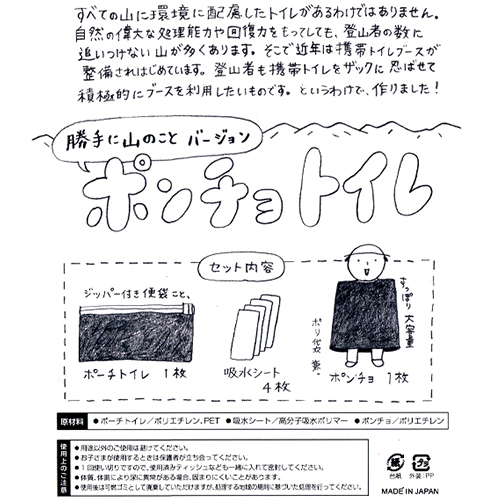 すべての山に環境に配慮したトイレがあるわけではありません。
自然の偉大な処理能力や回復力をもってしても、登山者の数に
追いつけない山が多くあります。そこで近年は携帯トイレブースが
整備されはじめています。登山者も携帯トイレをザックに忍ばせて
積極的にブースを利用したいものです。というわけで、作りました!
勝手に山のこと バージョン
ポンチョトイレ
セット内容
ジッパー付き便袋こと、
ポーチトイレ 1枚
吸水シート
4枚
すっぽり大容量
ポリ袋兼。
ポンチョ 1枚
MADE IN JAPAN
原材料 ●ポーチトイレ/ポリエチレン、PET ●吸水シート/高分子吸水ポリマー ●ポンチョ/ポリエチレン
使用上のご注意
●用途以外のご使用は避けてください。
●お子さまが使用するときは保護者が立ち会ってください。
●1回使い切りですので、使用済みティッシュなども一緒に入れて密封してください。
●体質、体調により尿に異常がある場合、固まりにくいことがあります。
●使用後は可燃ゴミとして廃棄していただけますが、処理する地域の規則に基づいた処理を行ってください。
紙
台紙
プラ
外装:PP